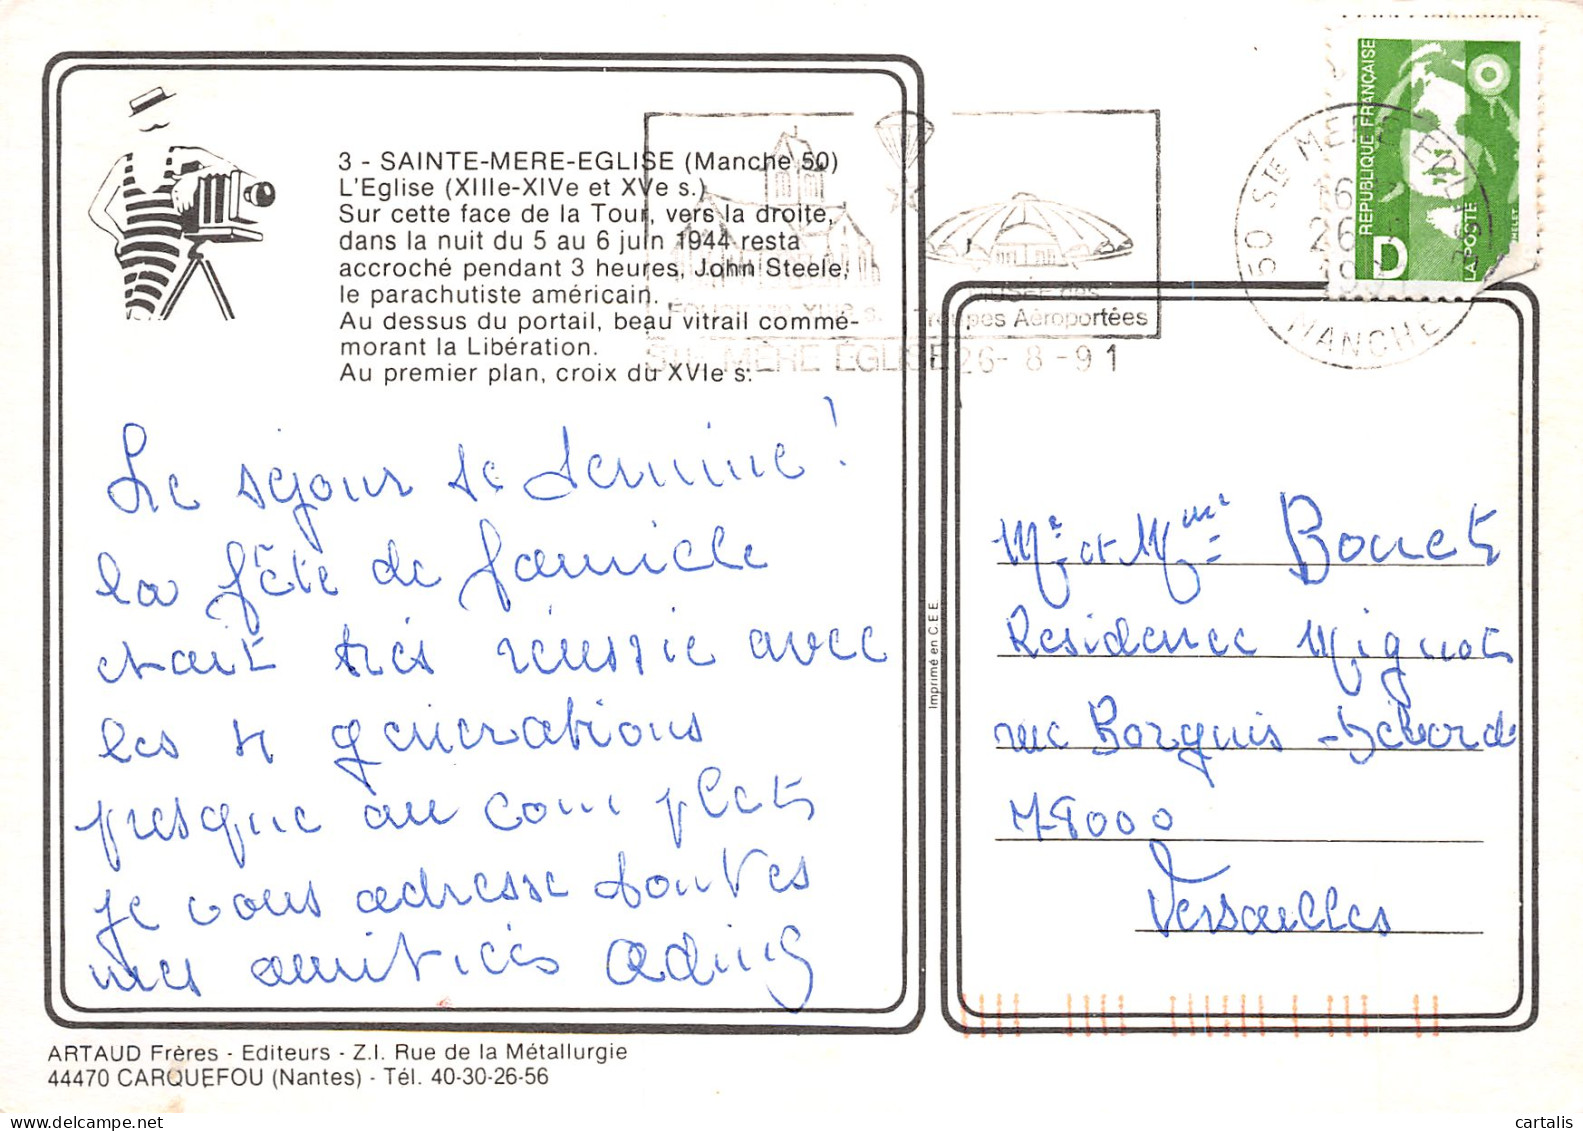 3 - SAINTE-MERE-EGLISE (Manche 50)
L'Eglise (XIIIe-XIVe et XVe s.)
Sur cette face de la Tour, vers la droite,
dans la nuit du 5 au 6 juin 1944 resta
accroché pendant 3 heures, John Steele,
le parachutiste américain.
Au dessus du portail, beau vitrail commé-
morant la Libération.
Au premier plan, croix du XVIe s.
Le séjour se termine !
la fête de famille
etait très réussie avec
les 4 générations
presque au complet
je vous adresse toutes
mes amitiés
ARTAUD Frères - Editeurs - Z.I. Rue de la Métallurgie
44470 CARQUEFOU (Nantes) - Tél. 40-30-26-56
Imprimé en C.E.E.
EGLISE DU XIIIe s.
MUSÉE des
Troupes Aéroportées
STE MÈRE ÉGLISE 26-8-91
50 STE MERE EGLISE
16
26
1991
MANCHE
REPUBLIQUE FRANÇAISE
D
LA POSTE
Mr et Mme Bonet
Residence Mignot
rue Borgnis-Debordes
78000
Versailles
cartalis